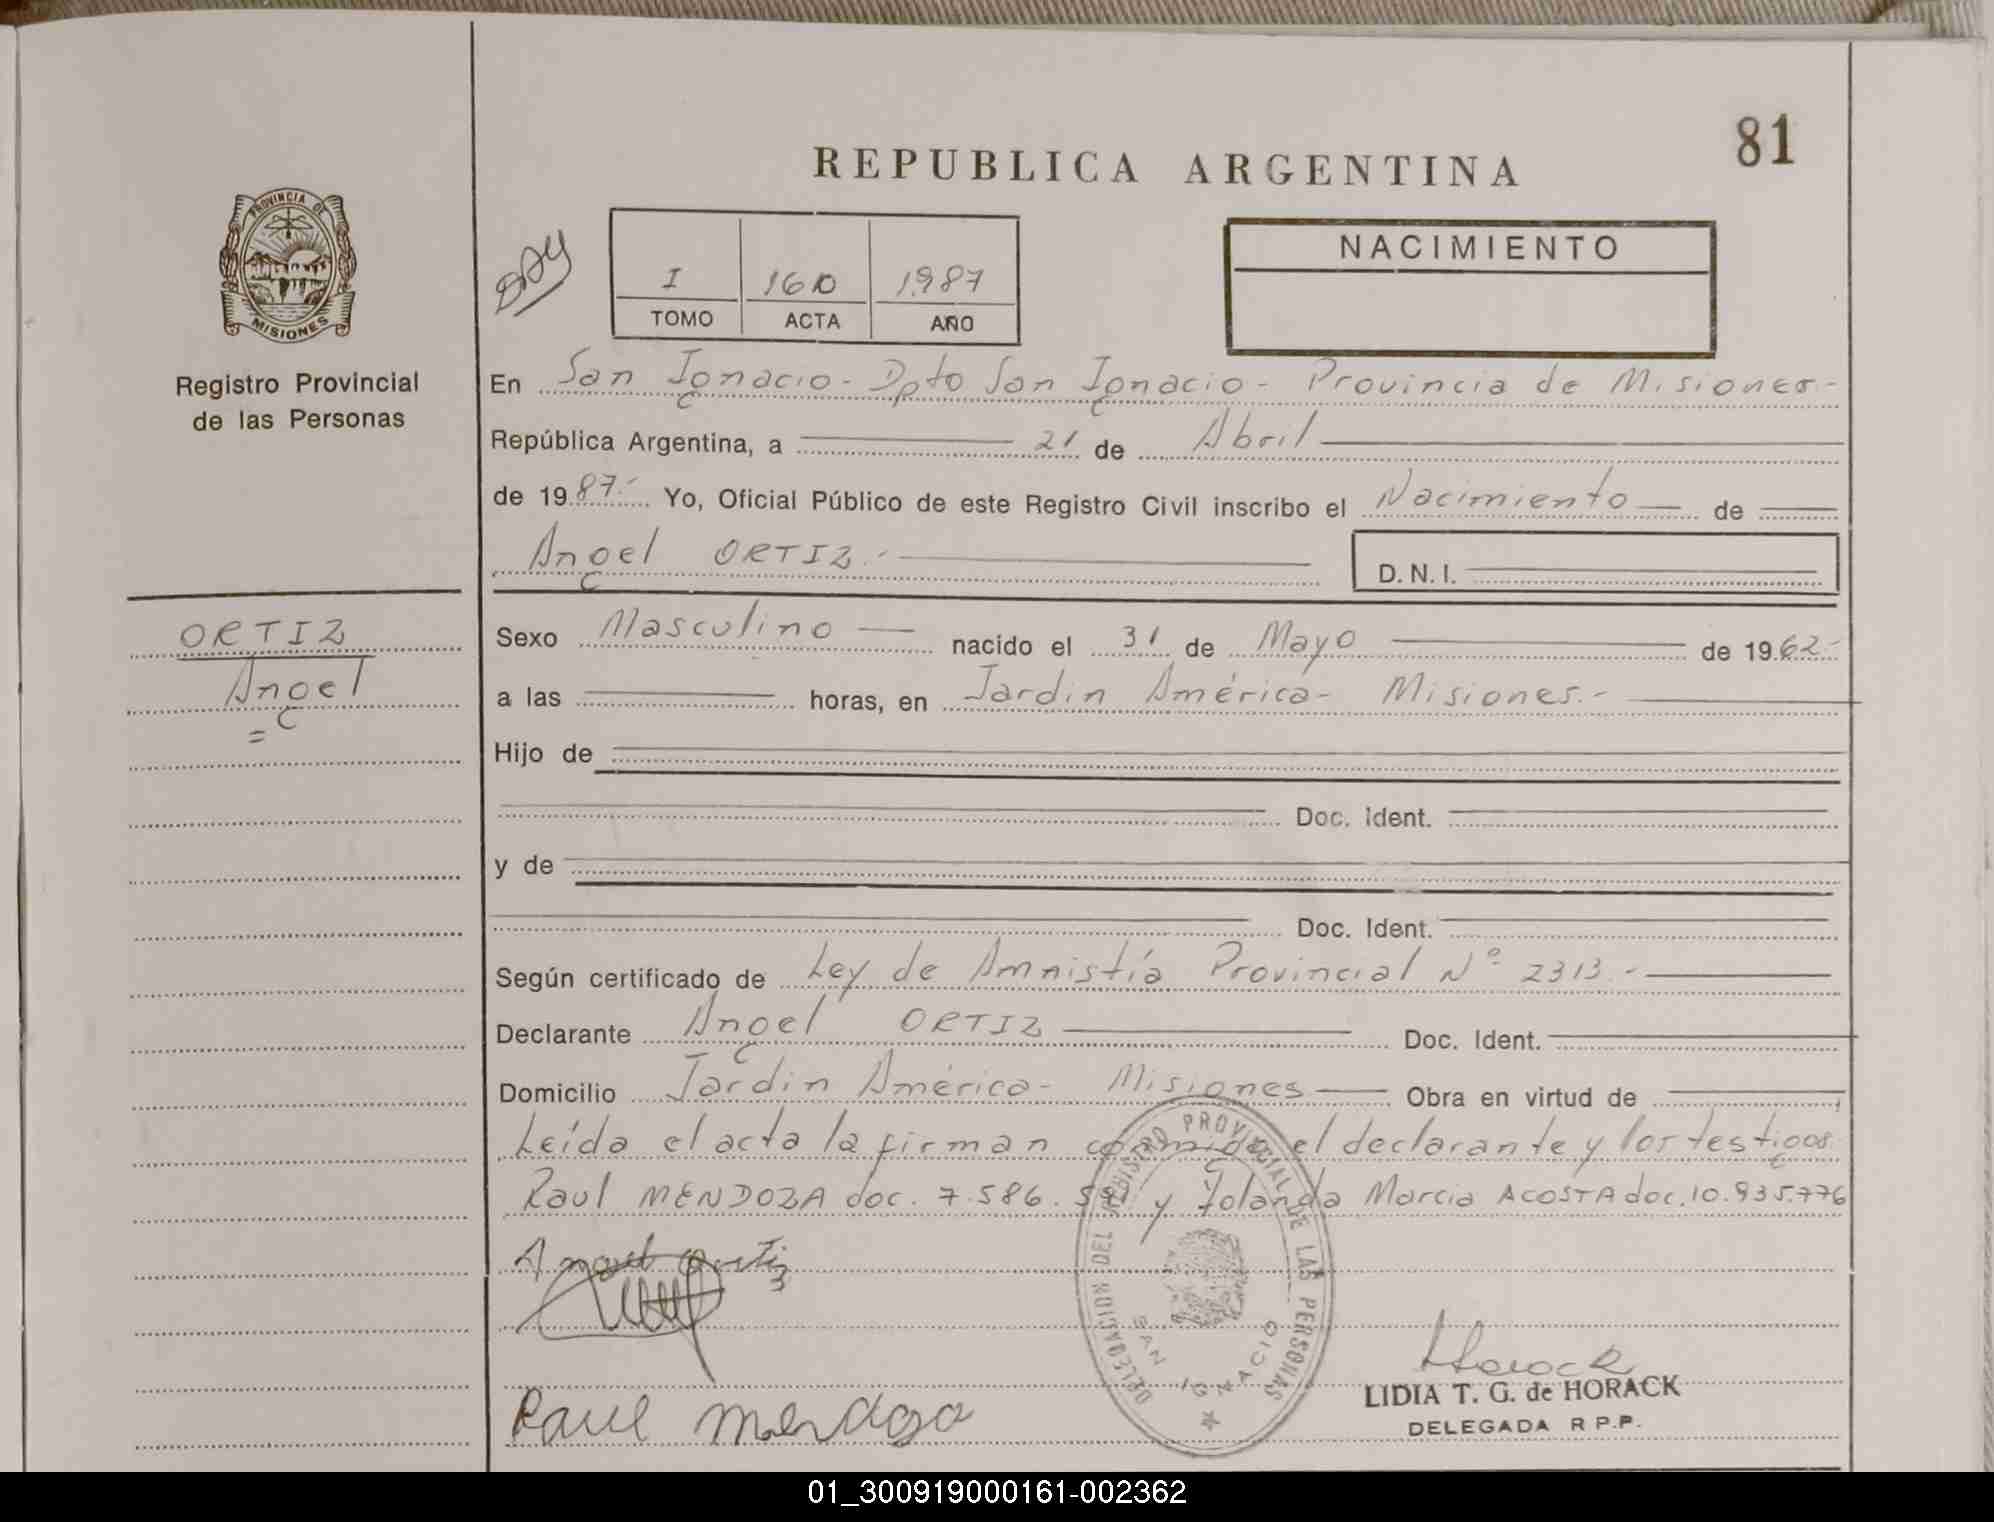 81
REPUBLICA ARGENTINA
PROVINCIA DE
MISIONES
Registro Provincial
de las Personas
I 160 1987
TOMO ACTA AÑO
NACIMIENTO
En San Ignacio - Dpto San Ignacio - Provincia de Misiones -
República Argentina, a 21 de Abril
de 1987.- Yo, Oficial Público de este Registro Civil inscribo el Nacimiento de
Angel ORTIZ.- D. N. I.
ORTIZ
Angel
=
Sexo Masculino nacido el 31 de Mayo de 1962.-
a las horas, en Jardin América - Misiones.-
Hijo de
Doc. Ident.
y de
Doc. Ident.
Según certificado de Ley de Amnistía Provincial Nº 2313.-
Declarante Angel ORTIZ Doc. Ident.
Domicilio Jardin América - Misiones Obra en virtud de
Leída el acta la firman conmigo el declarante y los testigos
Raul MENDOZA doc. 7.586. y Yolanda Marcia ACOSTA doc. 10.935.776
Angel Ortiz
DELEGACION DEL REGISTRO PROVINCIAL DE LAS PERSONAS
SAN IGNACIO
Horack
LIDIA T. G. de HORACK
DELEGADA R P.P.
Raul Mendoza
01_300919000161-002362